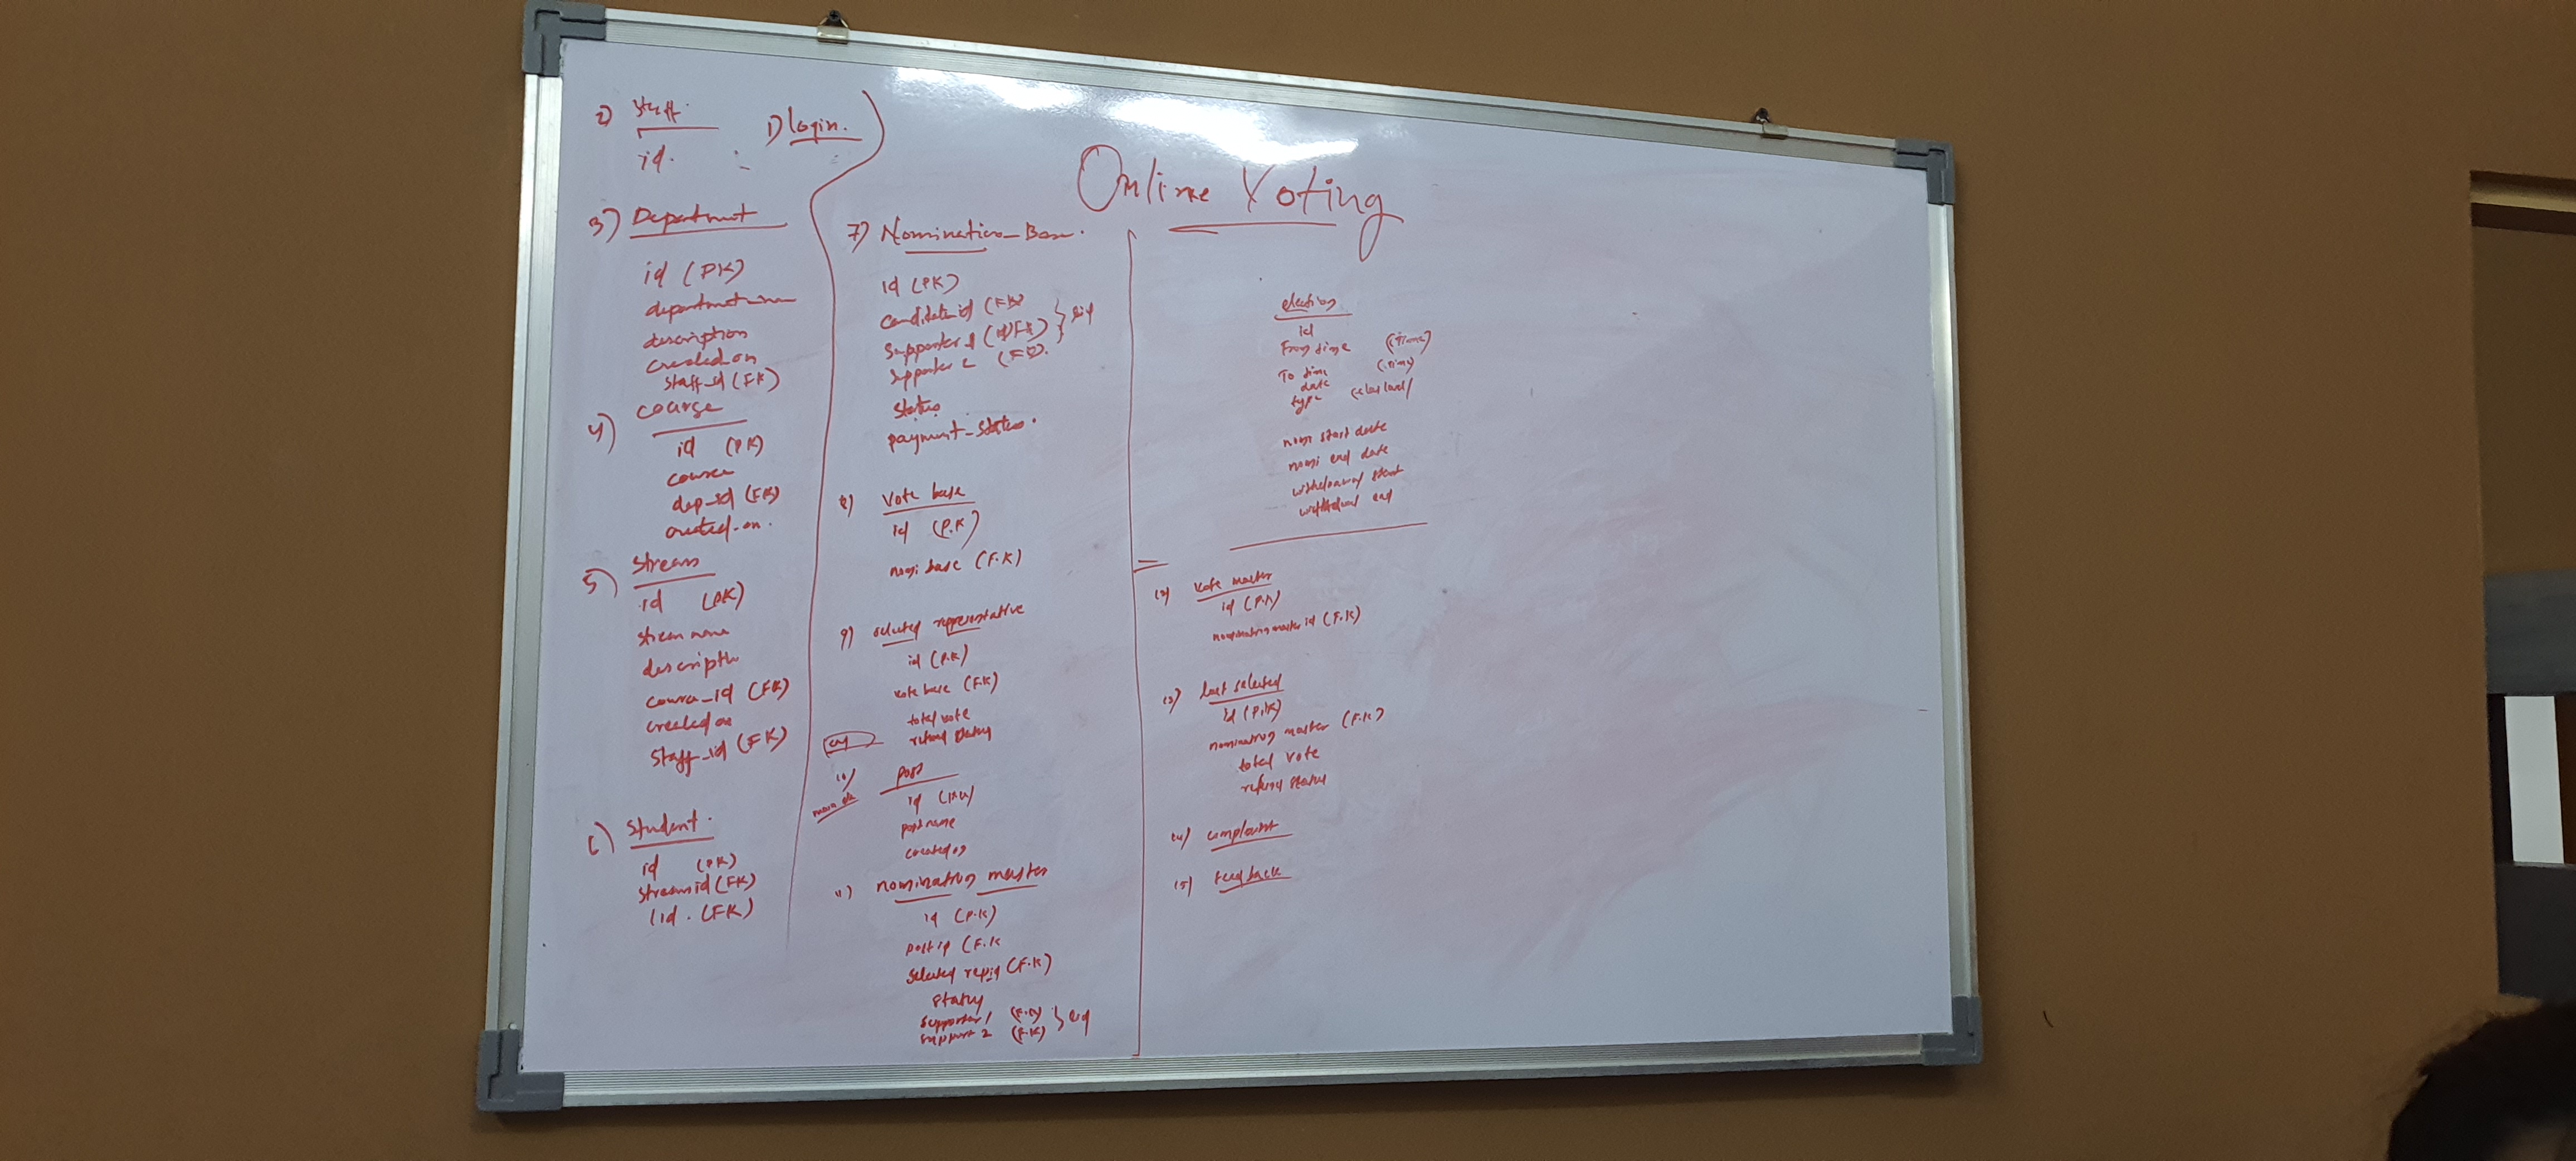 Online Voting
2) Staff.
id.
1) login.
3) Department
id (PK)
description
created_on
staff_id (FK)
4) course
id (PK)
course
dep_id (FK)
created_on.
5) Stream
id (PK)
stream name
course_id (FK)
created on
Staff_id (FK)
6) Student.
id (PK)
stream id (FK)
lid. (FK)
7) Nomination_Base.
id (PK)
candidate id (FK)
Supporter 1 (FK)
supporter 2 (FK).
status
payment_status.
8) Vote base
id (P.K)
nomi base (F.K)
9) selected representative
id (P.K)
vote base (F.K)
total vote
refund status
10) post
id (PK)
post name
created on
11) nomination master
id (P.K)
post id (F.K
selected rep id (F.K)
status
supporter 1 (F.K)
support 2 (F.K)
election
id
From time (Time)
To time (Time)
date
type
nomi start date
nomi end date
withdrawal start
withdrawal end
12) vote master
id (P.K)
nomination master id (F.K)
13) last selected
id (P.K)
nomination master (F.K)
total vote
refund status
14) complaint
15) feedback